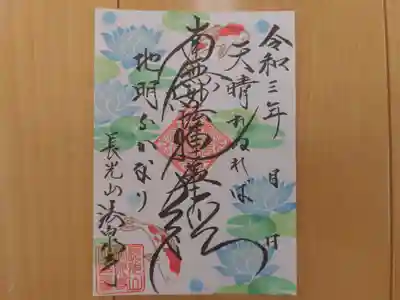 令和三年 月 日
天晴れぬれば
南無妙法蓮華経
地明らかなり
長光山